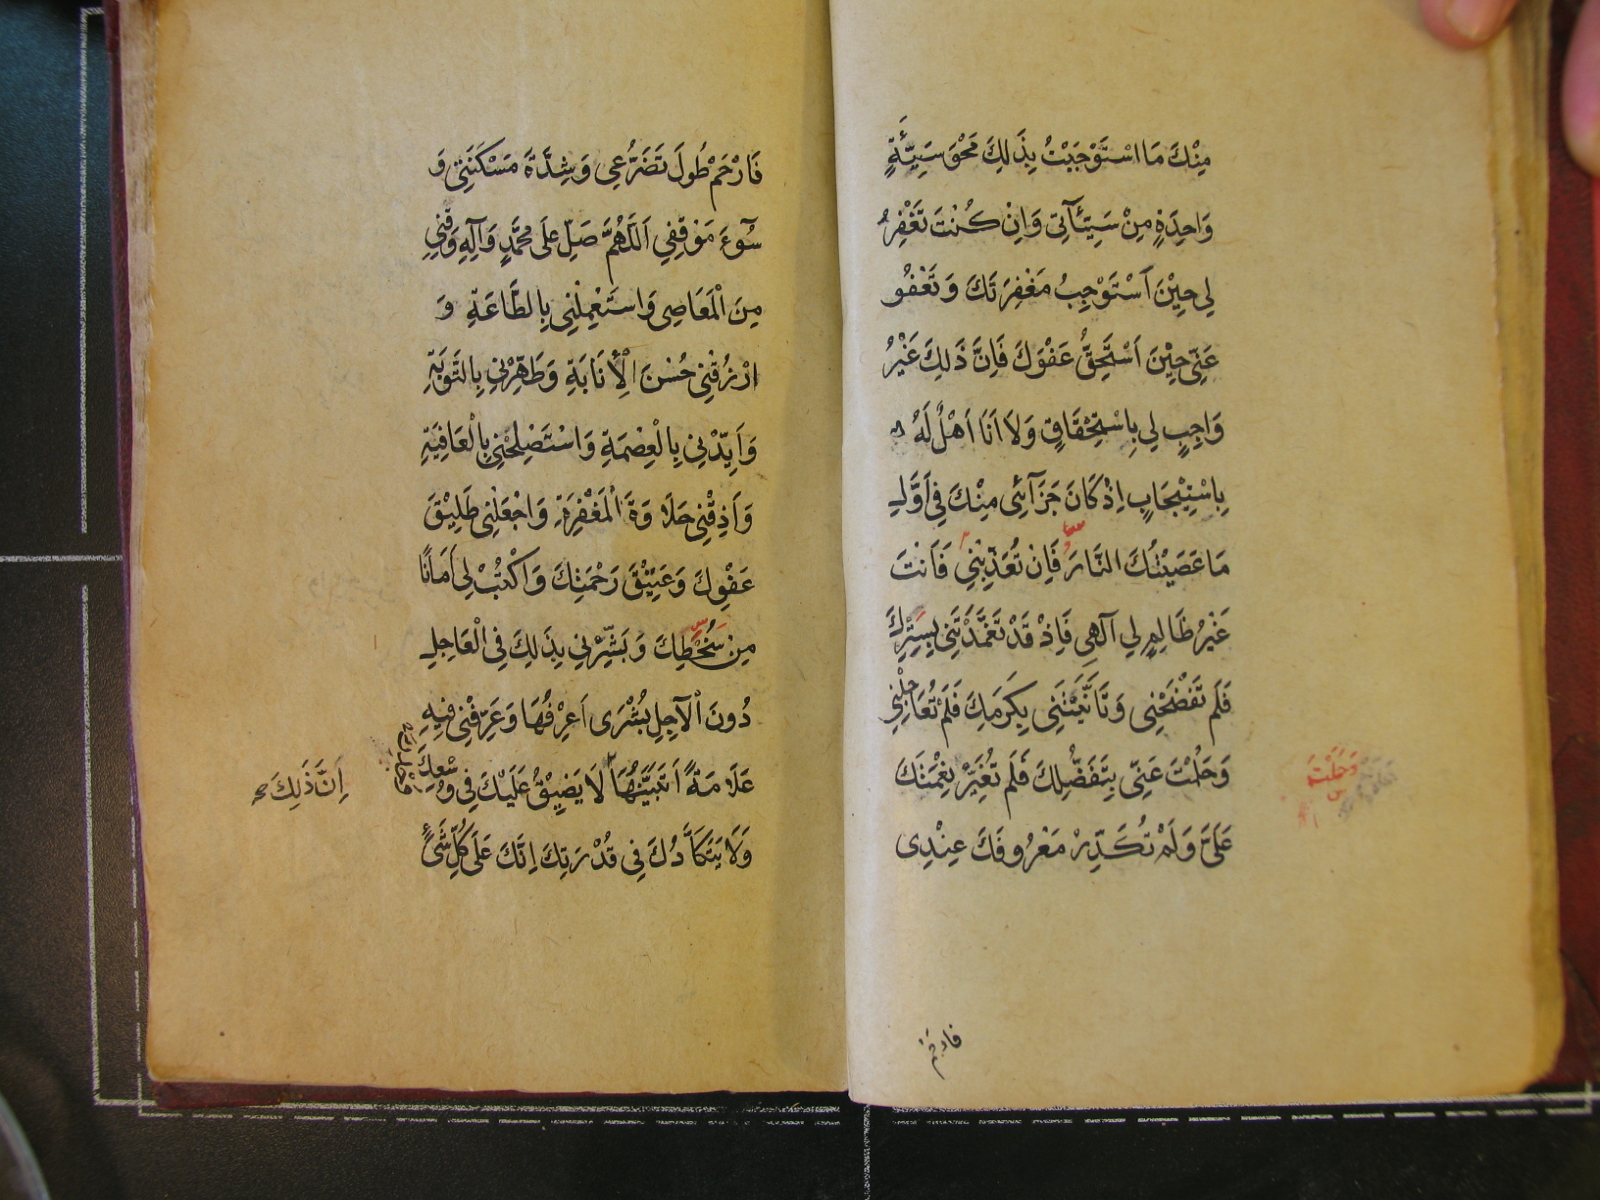 مِنْكَ مَا اسْتَوْجَبْتُ بِذَلِكَ مَحْوَ سَيِّئَةٍ
وَاحِدَةٍ مِنْ سَيِّئَآتِی وَاِنْ كُنْتَ تَغْفِرُ
لِي حِيْنَ اَسْتَوْجِبُ مَغْفِرَتَكَ وَتَعْفُو
عَنِّی حِيْنَ اَسْتَحِقُّ عَفْوَكَ فَاِنَّ ذَلِكَ غَيْرُ
وَاجِبٍ لِي بِاسْتِحْقَاقٍ وَلَا اَنَا اَهْلٌ لَهُ
بِاسْتِيْجَابٍ اِذْ كَانَ جَزَآئِی مِنْكَ فِی اَوَّلِ
مَا عَصَيْتُكَ النَّارَ فَاِنْ تُعَذِّبْنِي فَاَنْتَ
غَيْرُ ظَالِمٍ لِي اآلهِی فَاِذْ قَدْ تَغَمَّدْتَنِی بِسِتْرِكَ
فَلَم تَفْضَحْنِی وَتَاَنَّيْتَنَی بِكَرَمِكَ فَلَمْ تُعَاجِلْنِي
وَحَلُمْتَ عَنِّی بِتَفَضُّلِكَ فَلَم تُغَيِّرْ نِعْمَتَكَ
وَحَلُمْتَ
عَلَیَّ وَلَمْ تُكَدِّرْ مَعْرُوفَكَ عِنْدِی
فارحم
فَارْحَمْ طُولَ تَضَرُّعِی وَشِدَّةَ مَسْكَنَتِی وَ
سُوْءَ مَوْقِفِي اَللّهُمَّ صَلِّ عَلَى مُحَمَّدٍ وَآلِهِ وَقِنِي
مِنَ الْمَعَاصِی وَاسْتَعْمِلْنِی بِالطَّاعَةِ وَ
ارْزُقْنِی حُسْنَ الْاِنَابَةِ وَطَهِّرْنِي بِالتَّوْبَةِ
وَاَيِّدْنِی بِالْعِصْمَةِ وَاسْتَصْلِحْنِی بِالْعَافِيَةِ
وَاَذِقْنِی حَلَاوَةَ الْمَغْفِرَةِ وَاجْعَلْنِی طَلِيْقَ
عَفْوِكَ وَعَتِيْقَ رَحْمَتِكَ وَاكْتُبْ لِی اَمَانًا
مِن سُخْطِكَ وَبَشِّرْنِي بِذَلِكَ فِی الْعَاجِلِ
دُونَ الْآجِلِ بُشْرَى اَعْرِفُهَا وَعَرِّفْنِی فِيْهِ
عَلَامَةً اَتَبَيَّنُهَا لَا يَضِيْقُ عَلَيْكَ فِی وُسْعِكَ
اِنَّ ذَلِكَ
وَلَا يَتَكَاَّدُكَ فِی قُدْرَتِكَ اِنَّكَ عَلَى كُلِّ شَیْءٍ